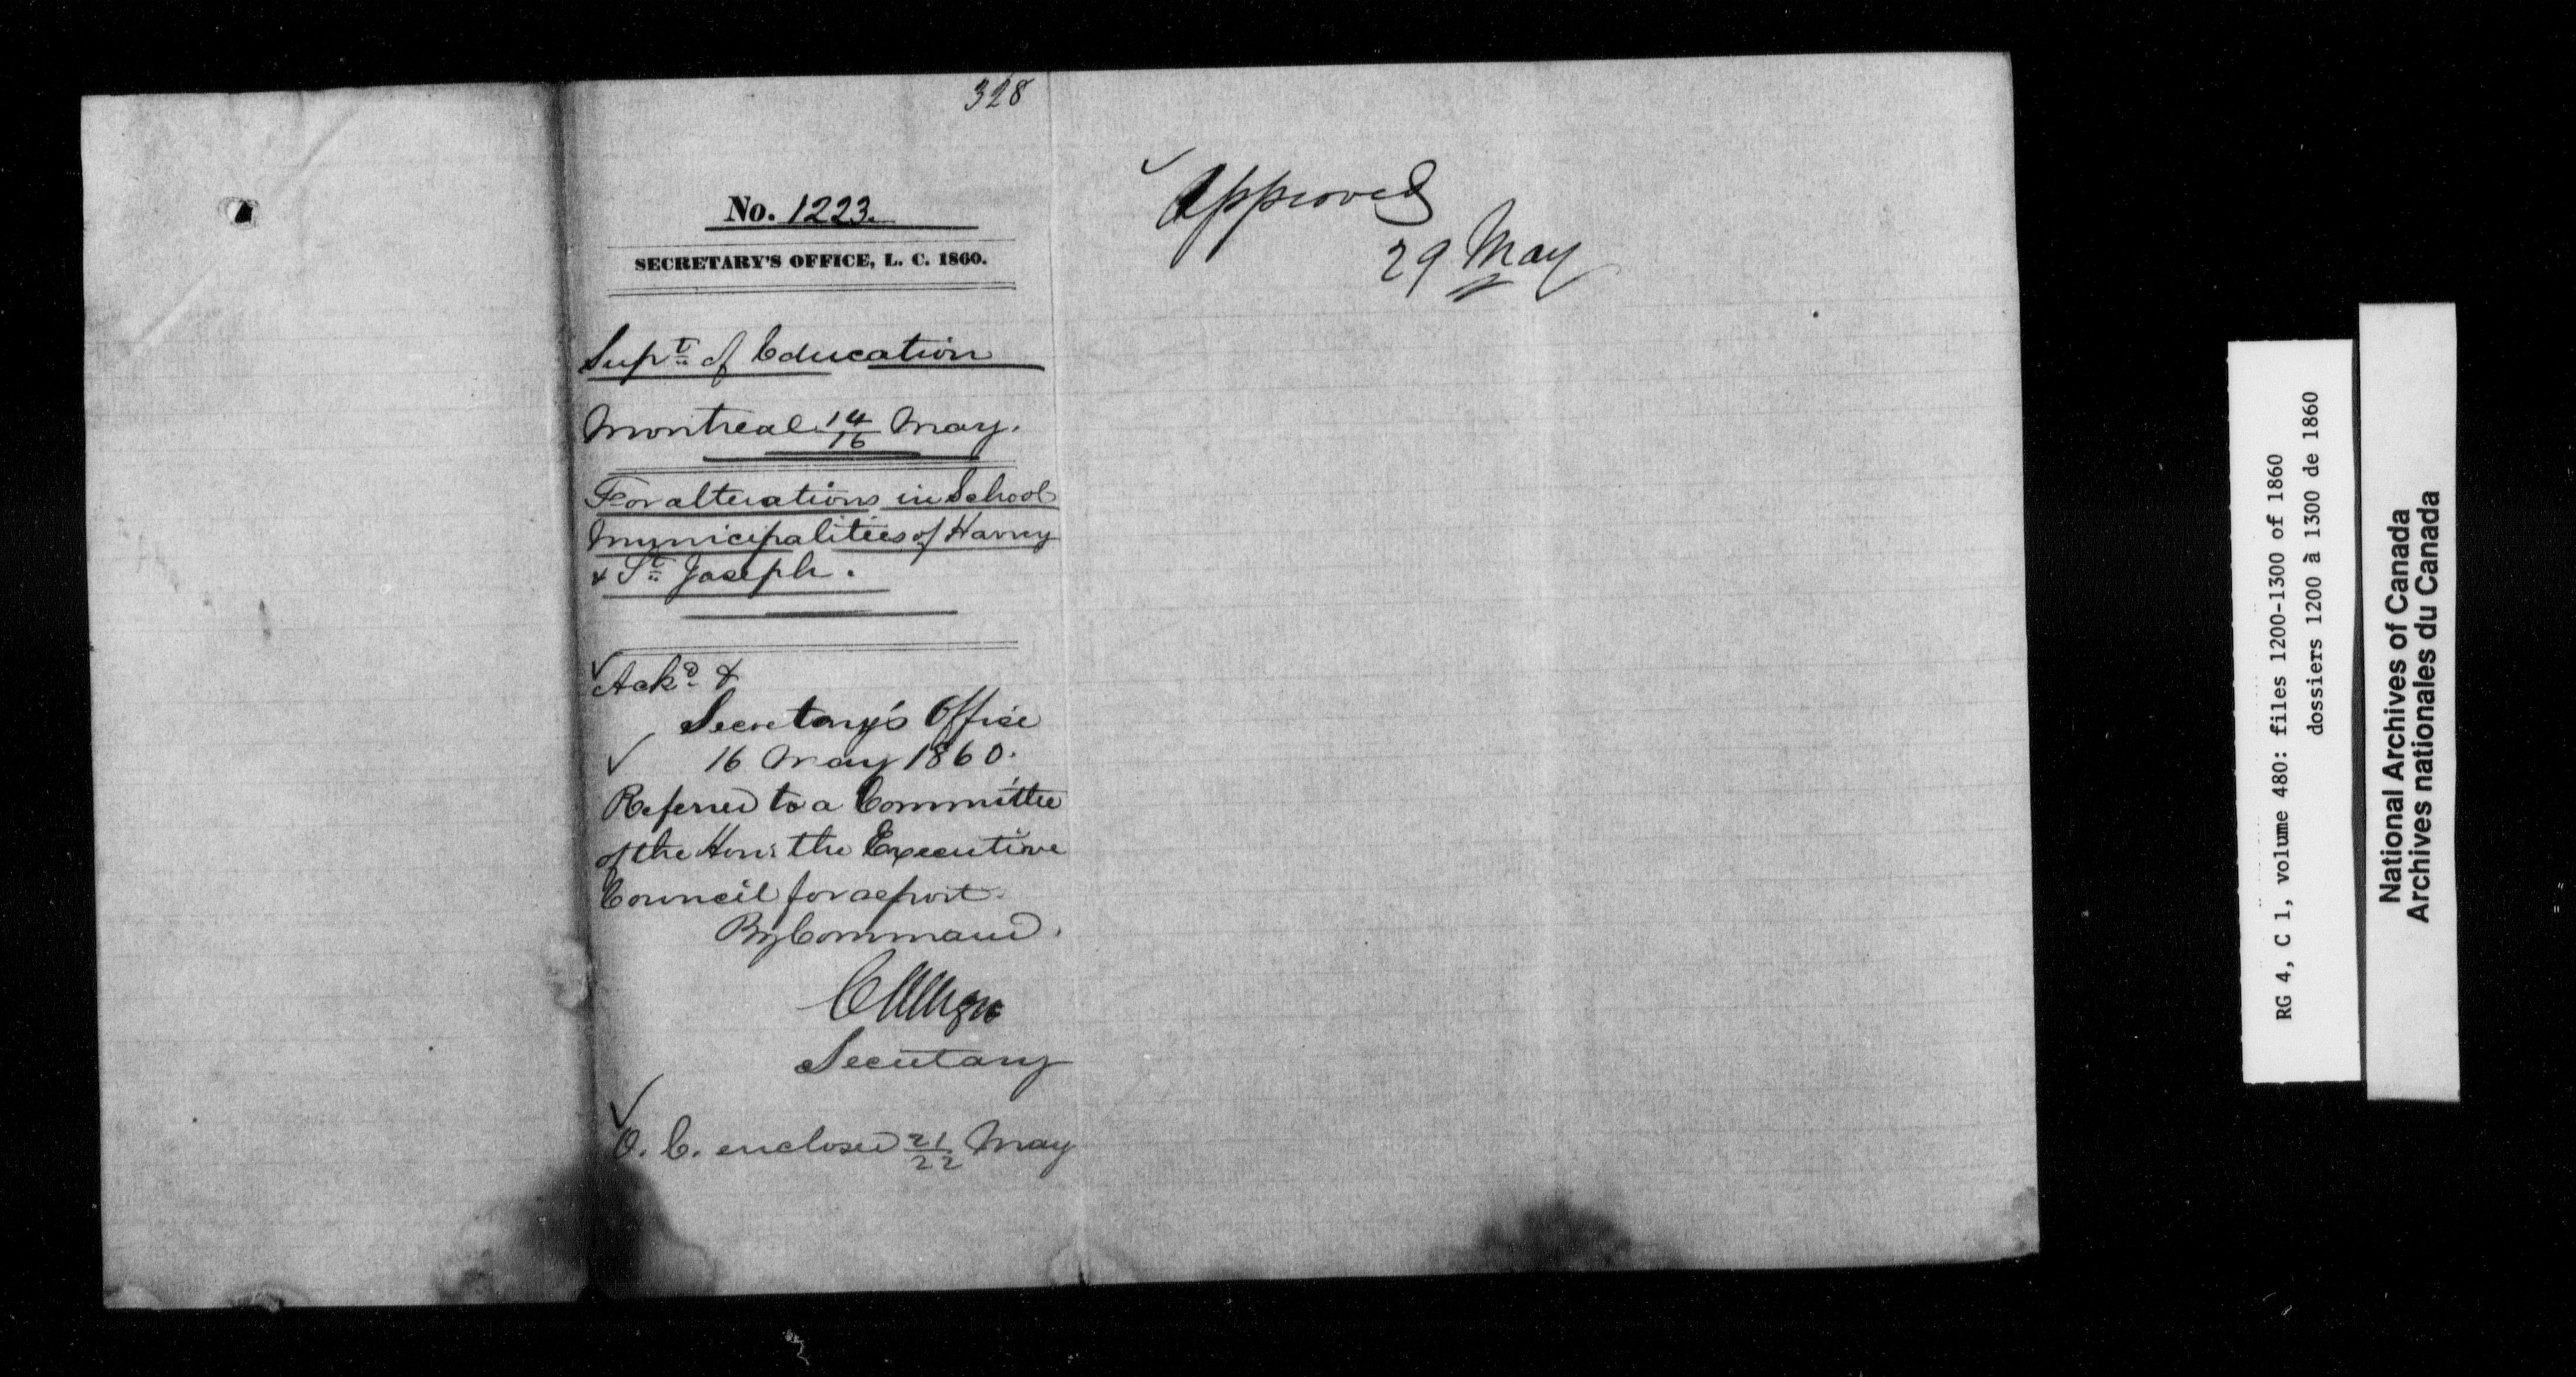 328
No. 1223.
SECRETARY'S OFFICE, L. C. 1860.
Supt of Education
Montreal 14/16 May.
For alterations in School
Municipalities of Harvey
& St Joseph.
Ackd &
Secretary's Office
16 May 1860.
Referred to a Committee
of the Hon: the Executive
Council for report.
By Command.
Secretary
O. C. enclosed 21/22 May
Approved
29 May
RG 4, C 1, volume 480: files 1200-1300 of 1860
dossiers 1200 à 1300 de 1860
National Archives of Canada
Archives nationales du Canada